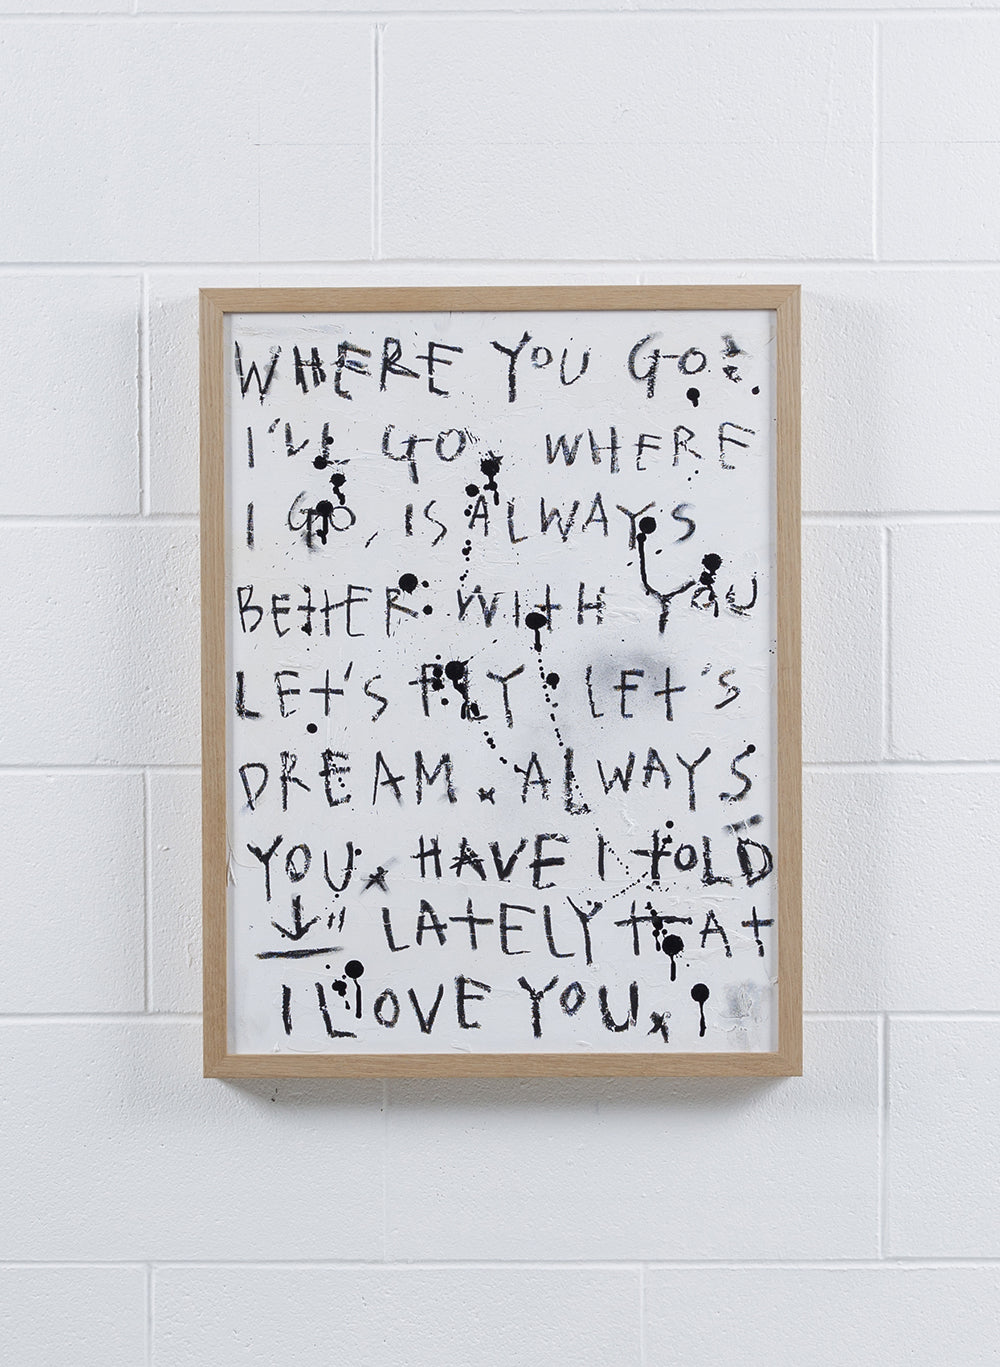 WHERE YOU GO?
I'LL GO, WHERE
I GO, IS ALWAYS
BETTER WITH YOU
LET'S FLY LET'S
DREAM. ALWAYS
YOU x HAVE I TOLD
↓" LATELY THAT
I LOVE YOU x